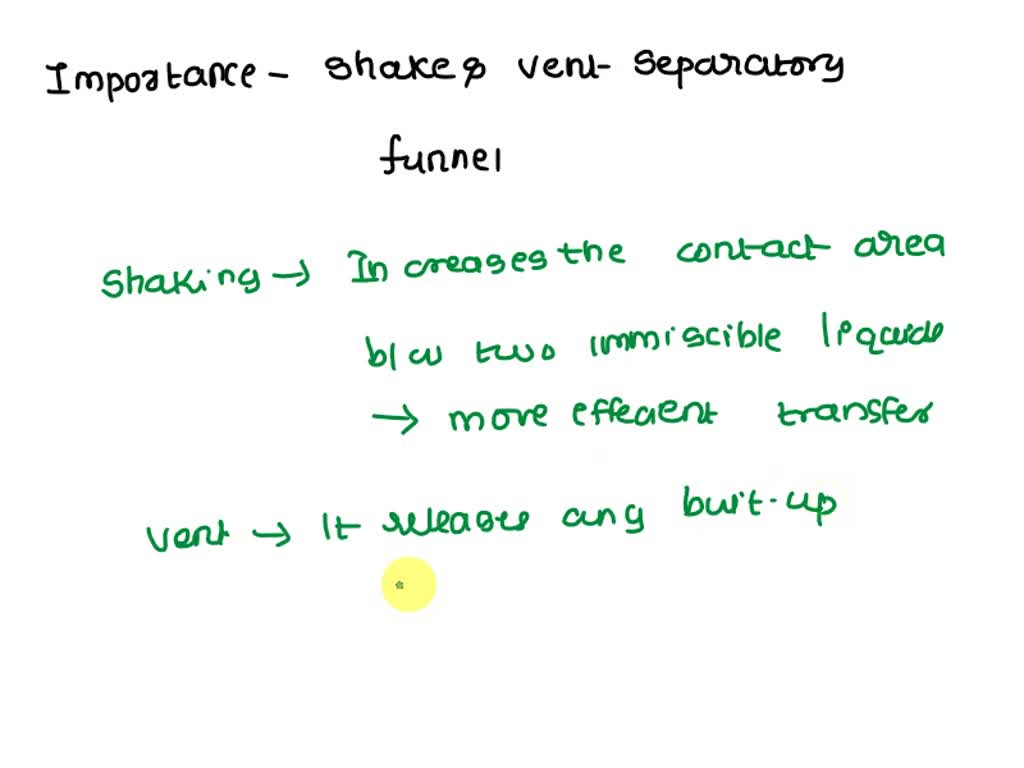 Importance - shake & vent separatory
funnel
Shaking → Increases the contact area
b/w two immiscible liquids
→ more efficient transfer
vent → It releases any buit-up